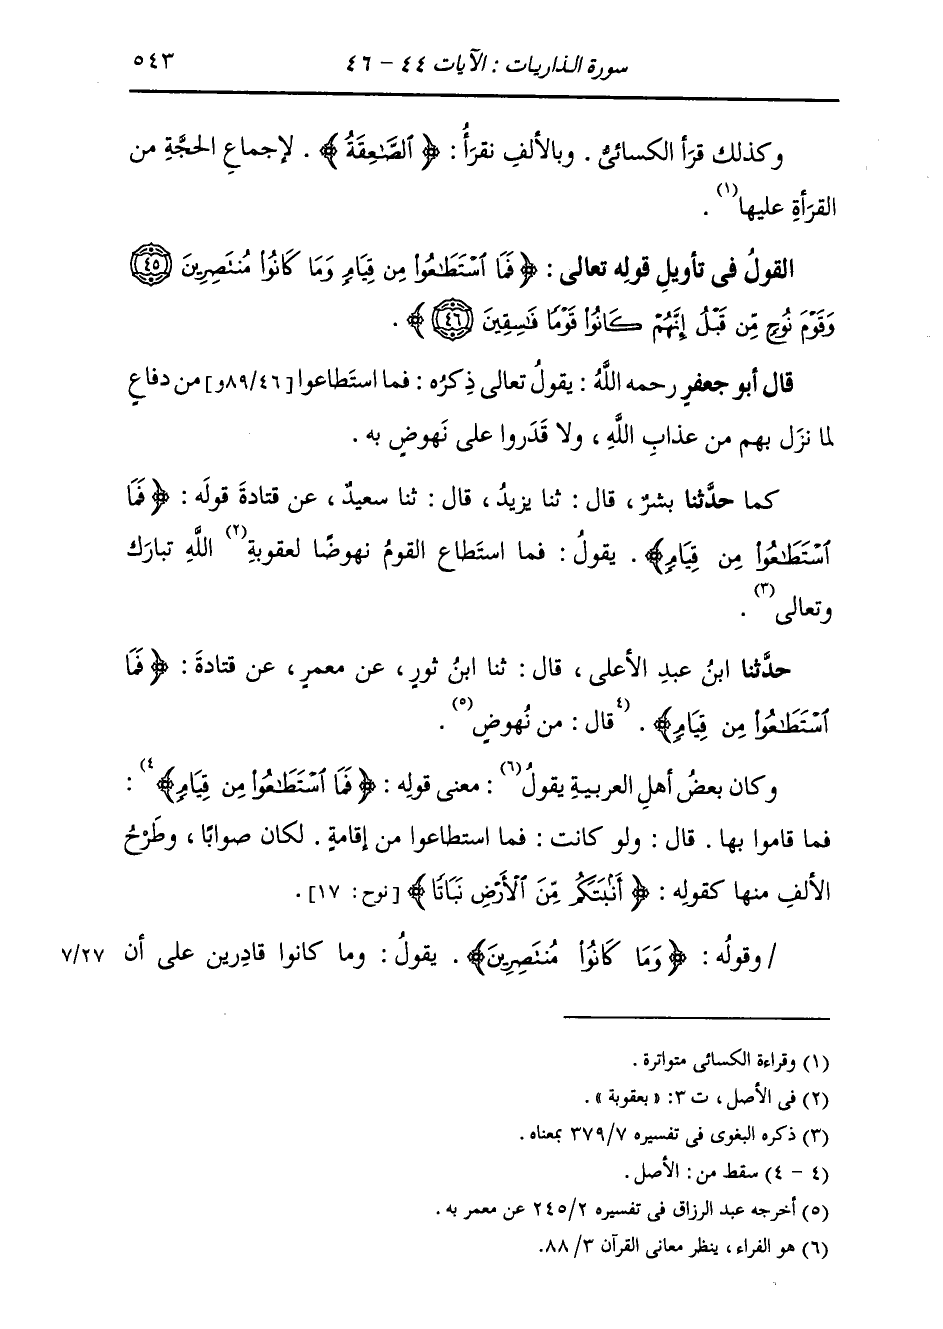 سورة الذاريات : الآيات ٤٤ - ٤٦ ٥٤٣
وكذلك قرَأ الكسائىُّ . وبالألفِ نقرَأُ : ﴿ ٱلصَّٰعِقَةُ ﴾ . لإجماعِ الحجَّةِ من
القرَأةِ عليها(١) .
القولُ فى تأويلِ قولِه تعالى : ﴿ فَمَا ٱسْتَطَٰعُوا۟ مِن قِيَامٍ وَمَا كَانُوا۟ مُنتَصِرِينَ (٤٥)
وَقَوْمَ نُوحٍ مِّن قَبْلُ إِنَّهُمْ كَانُوا۟ قَوْمًا فَٰسِقِينَ (٤٦) ﴾ .
قال أبو جعفرٍ رحمه اللَّهُ : يقولُ تعالى ذِكرُه : فما استَطاعوا [٨٩/٤٦و] من دفاعٍ
لما نزَل بهم من عذابِ اللَّهِ ، ولا قَدَروا على نَهوضٍ به .
كما حدَّثنا بشرٌ ، قال : ثنا يزيدُ ، قال : ثنا سعيدٌ ، عن قتادةَ قولَه : ﴿ فَمَا
ٱسْتَطَٰعُوا۟ مِن قِيَامٍ ﴾ . يقولُ : فما استَطاع القومُ نهوضًا لعقوبةِ(٢) اللَّهِ تبارَك
وتعالى(٣) .
حدَّثنا ابنُ عبدِ الأعلى ، قال : ثنا ابنُ ثورٍ ، عن معمرٍ ، عن قتادةَ : ﴿ فَمَا
ٱسْتَطَٰعُوا۟ مِن قِيَامٍ ﴾ . (٤قال : من نُهوضٍ(٥) .
وكان بعضُ أهلِ العربيةِ يقولُ(٦) : معنى قولِه : ﴿ فَمَا ٱسْتَطَٰعُوا۟ مِن قِيَامٍ ﴾٤) :
فما قاموا بها . قال : ولو كانت : فما استطاعوا من إقامةٍ . لكان صوابًا ، وطَرْحُ
الألفِ منها كقولِه : ﴿ أَنۢبَتَكُم مِّنَ ٱلْأَرْضِ نَبَاتًا ﴾ [نوح: ١٧] .
/ وقولُه : ﴿ وَمَا كَانُوا۟ مُنتَصِرِينَ ﴾ . يقولُ : وما كانوا قادِرين على أن ٧/٢٧
(١) وقراءة الكسائى متواترة .
(٢) فى الأصل ، ت ٣: « بعقوبة » .
(٣) ذكره البغوى فى تفسيره ٣٧٩/٧ بمعناه .
(٤ - ٤) سقط من : الأصل .
(٥) أخرجه عبد الرزاق فى تفسيره ٢٤٥/٢ عن معمر به .
(٦) هو الفراء ، ينظر معانى القرآن ٨٨/٣.